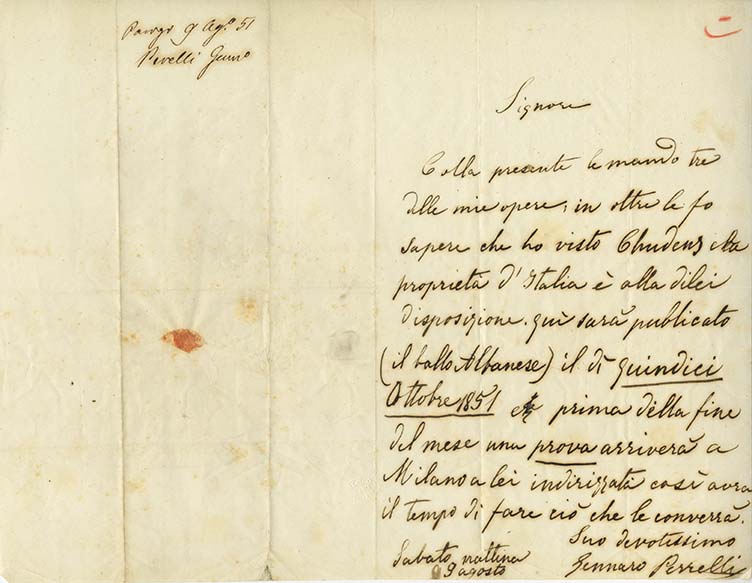 Parigi 9 Ago. 51
Perelli Genro
Signore
Colla presente le mando tre
delle mie opere, in oltre le fo
sapere che ho visto Chudens e la
proprietà d'Italia è alla dilei
disposizione. quì sarà publicato
(il ballo Albanese) il dì quindici
Ottobre 1851 e prima della fine
del mese una prova arriverà a
Milano a lei indirizzata così avrà
il tempo di fare ciò che le converrà.
Suo devotissimo
Gennaro Perrelli
Sabato mattina
9 agosto